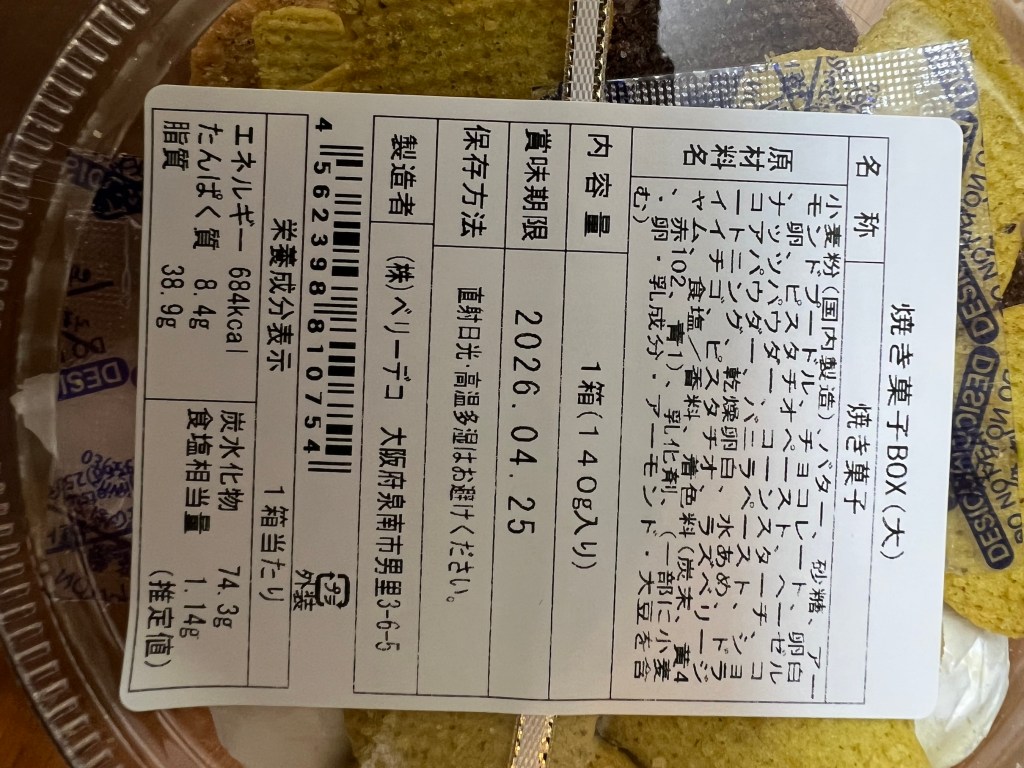 焼き菓子BOX(大)
名称 焼き菓子
原材料名 小麦粉(国内製造)、バター、砂糖、アー
モンドプードル、チョコレート、卵白
、卵、ピスタチオペースト、ヘーゼル
ナッツパウダー、コーンスターチ、コ
コアパウダー、バニラペースト、ショ
ートニング、乾燥卵白、水あめ、ドラ
イイチゴ、ピスタチオ、ラズベリージ
ャム、食塩/香料、着色料(炭末、黄4
、赤102、青1)、乳化剤、(一部に小麦
・卵・乳成分・アーモンド・大豆を含
む)
内容量 1箱(140g入り)
賞味期限 2026.04.25
保存方法 直射日光・高温多湿はお避けください。
製造者 (株)ベリーデコ 大阪府泉南市男里3-6-5
4 562398 810754
プラ
外装
栄養成分表示 1箱当たり
エネルギー 684kcal 炭水化物 74.3g
たんぱく質 8.4g 食塩相当量 1.14g
脂質 38.9g (推定値)
DO NOT
DESI